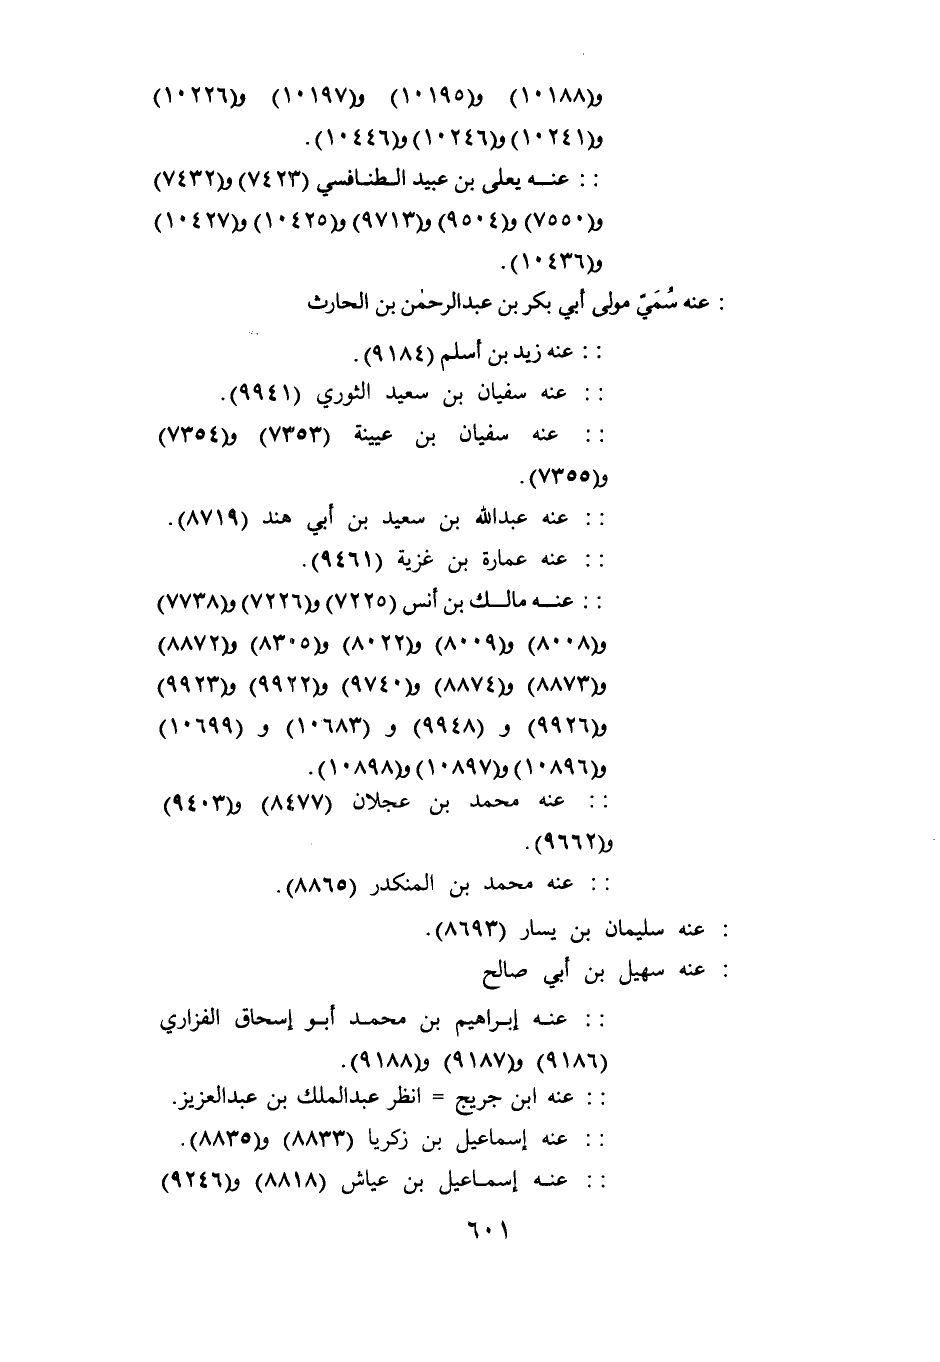 و(١٠١٨٨) و(١٠١٩٥) و(١٠١٩٧) و(١٠٢٢٦)
و(١٠٢٤١) و(١٠٢٤٦) و(١٠٤٤٦).
: : عنــه يعلى بن عبيد الـطنـافسي (٧٤٢٣) و(٧٤٣٢)
و(٧٥٥٠) و(٩٥٠٤) و(٩٧١٣) و(١٠٤٢٥) و(١٠٤٢٧)
و(١٠٤٣٦).
: عنه سُمَيّ مولى أبي بكر بن عبدالرحمٰن بن الحارث
: : عنه زيد بن أسلم (٩١٨٤).
: : عنه سفيان بن سعيد الثوري (٩٩٤١).
: : عنه سفيان بن عيينة (٧٣٥٣) و(٧٣٥٤)
و(٧٣٥٥).
: : عنه عبدالله بن سعيد بن أبي هند (٨٧١٩).
: : عنه عمارة بن غزية (٩٤٦١).
: : عنــه مالــك بن أنس (٧٢٢٥) و(٧٢٢٦) و(٧٧٣٨)
و(٨٠٠٨) و(٨٠٠٩) و(٨٠٢٢) و(٨٣٠٥) و(٨٨٧٢)
و(٨٨٧٣) و(٨٨٧٤) و(٩٧٤٠) و(٩٩٢٢) و(٩٩٢٣)
و(٩٩٢٦) و (٩٩٤٨) و (١٠٦٨٣) و (١٠٦٩٩)
و(١٠٨٩٦) و(١٠٨٩٧) و(١٠٨٩٨).
: : عنه محمد بن عجلان (٨٤٧٧) و(٩٤٠٣)
و(٩٦٦٢).
: : عنه محمد بن المنكدر (٨٨٦٥).
: عنه سليمان بن يسار (٨٦٩٣).
: عنه سهيل بن أبي صالح
: : عنـه إبـراهيم بن محمـد أبـو إسحاق الفزاري
(٩١٨٦) و(٩١٨٧) و(٩١٨٨).
: : عنه ابن جريج = انظر عبدالملك بن عبدالعزيز.
: : عنه إسماعيل بن زكريا (٨٨٣٣) و(٨٨٣٥).
: : عنـه إسمـاعيل بن عياش (٨٨١٨) و(٩٢٤٦)
٦٠١